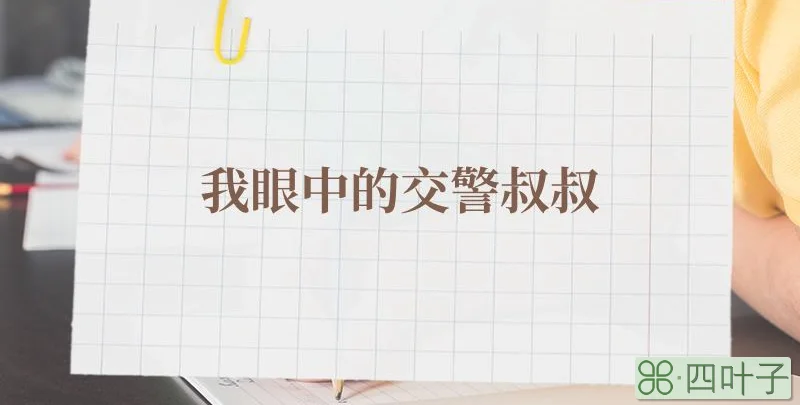 我眼中的交警叔叔
四叶子